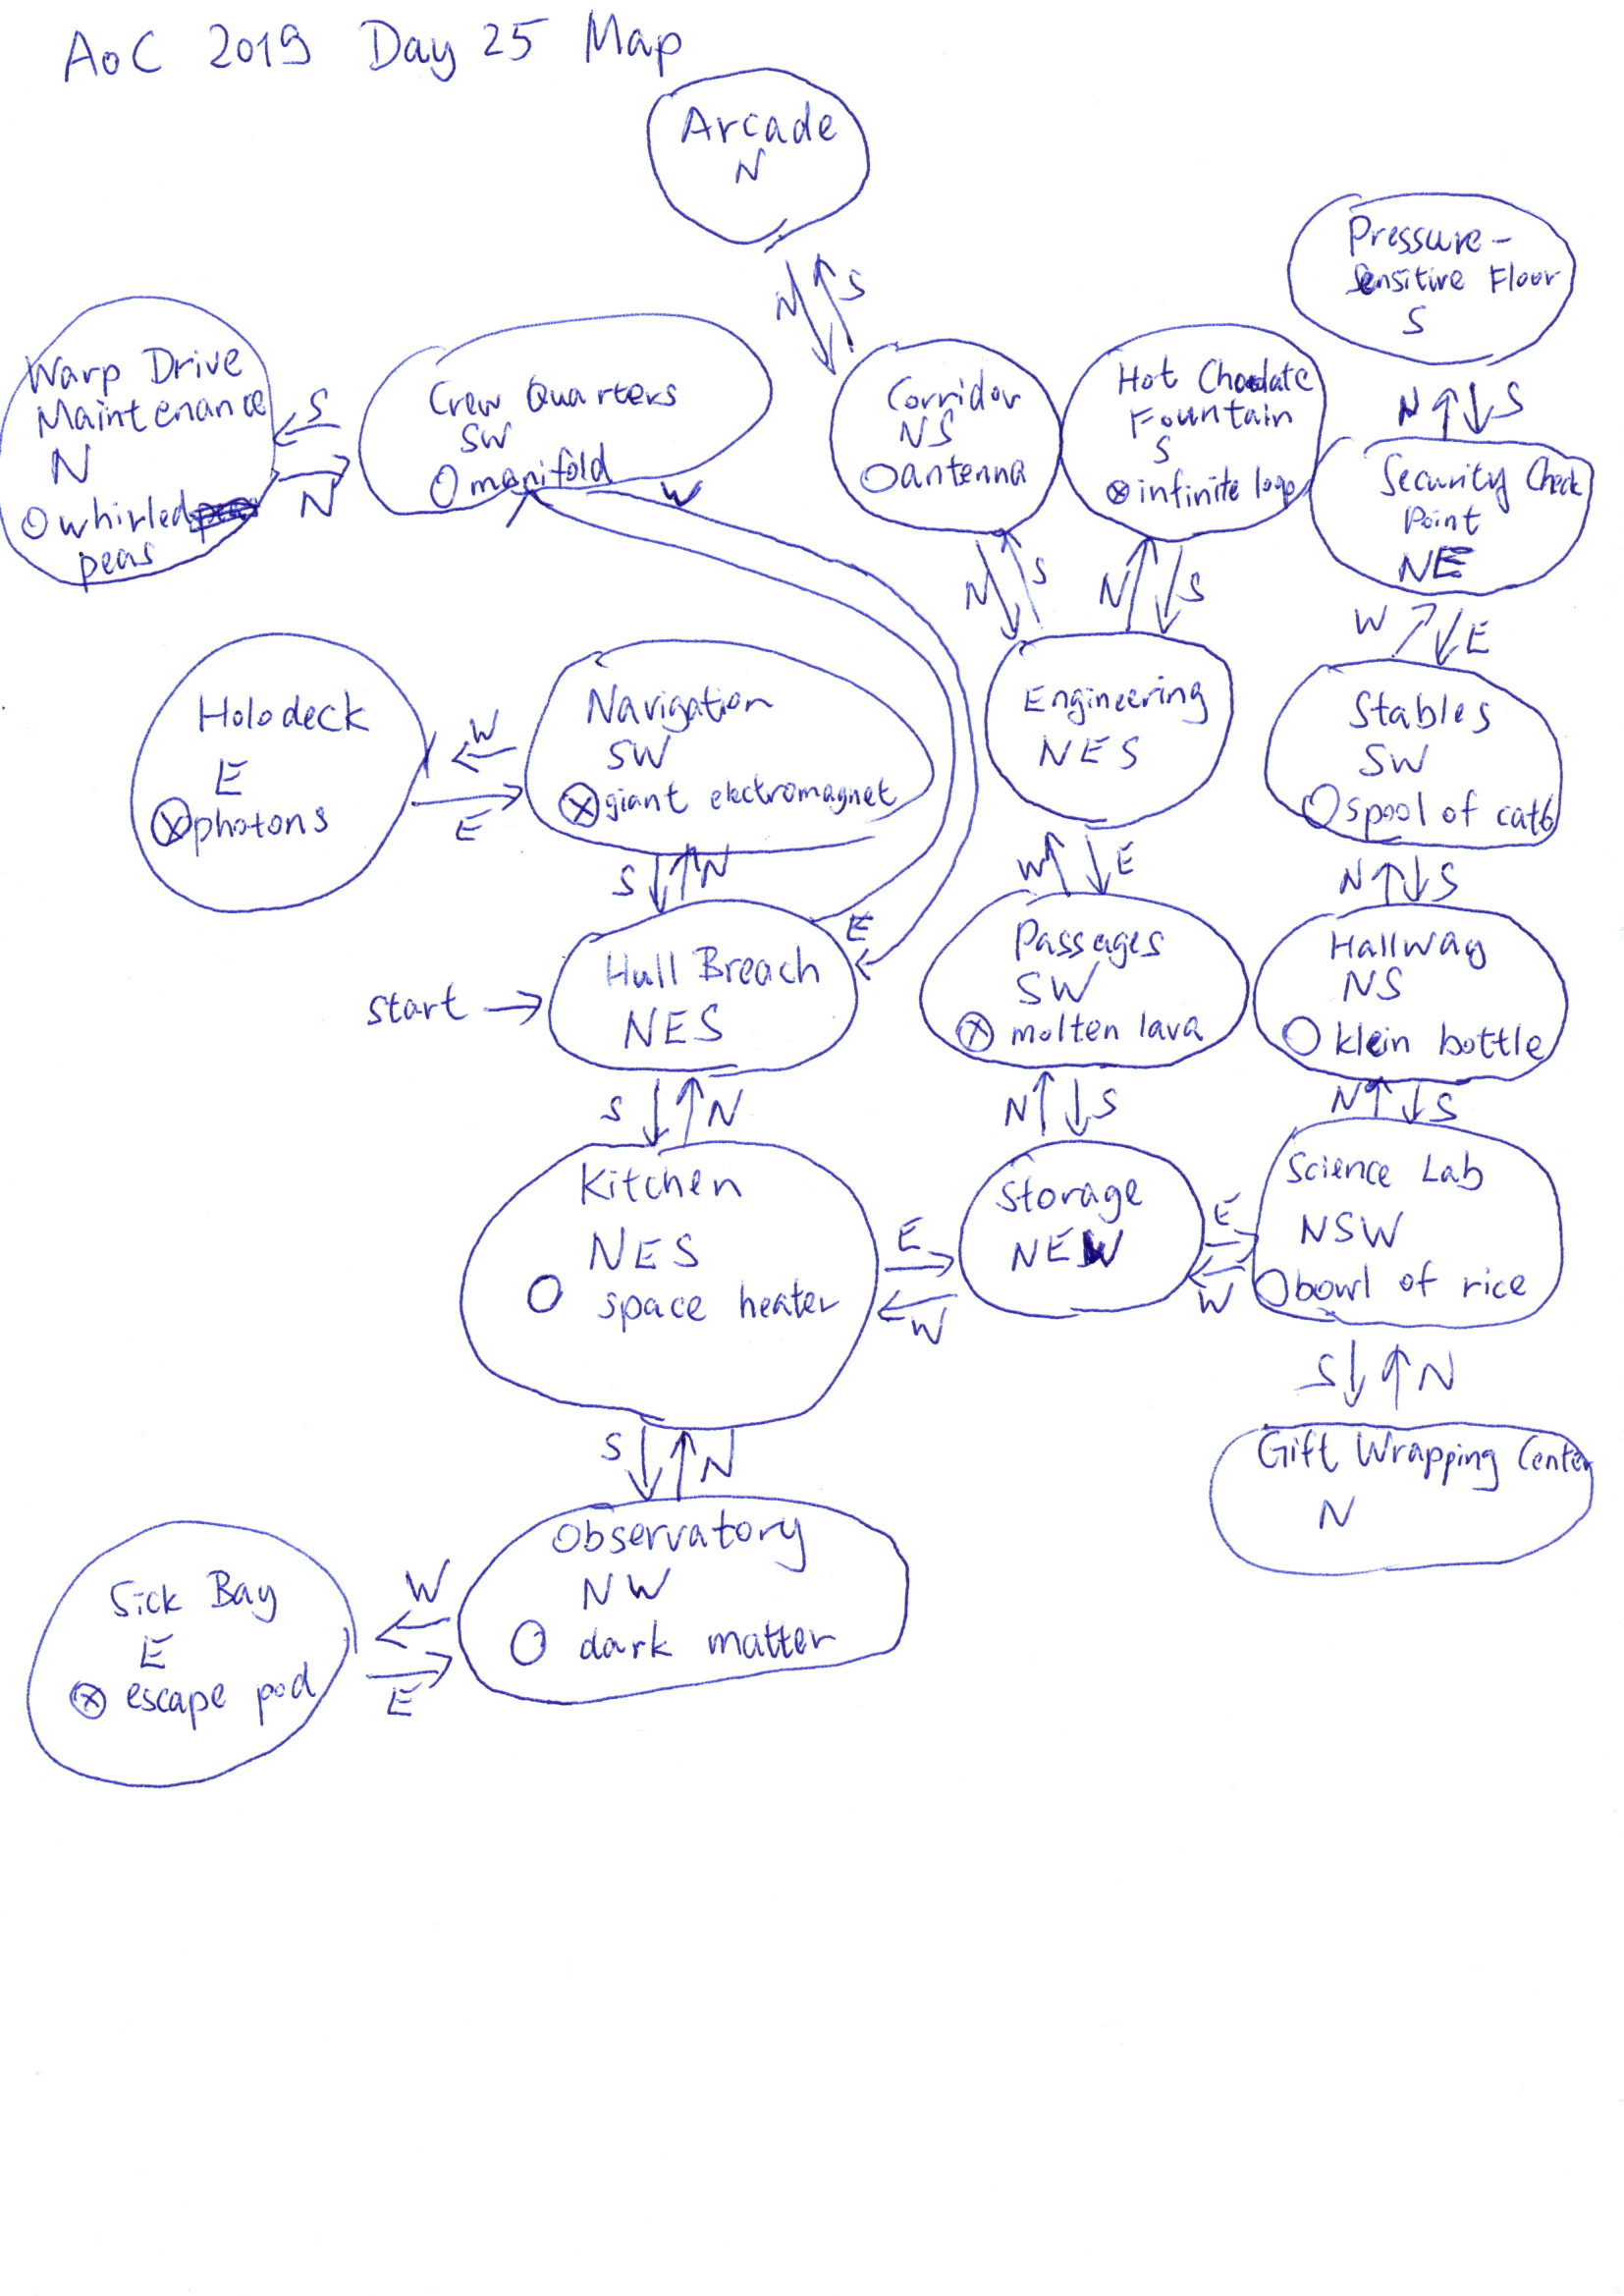 AoC 2019 Day 25 Map
Arcade
N
N
S
Pressure-
Sensitive Floor
S
N
S
Warp Drive
Maintenance
N
O whirled
peas
S
N
Crew Quarters
SW
O manifold
W
Corridor
NS
O antenna
Hot Chocolate
Fountain
S
⊗ infinite loop
Security Check
Point
NE
N
S
N
S
W
E
Holodeck
E
⊗ photons
W
E
Navigation
SW
⊗ giant electromagnet
Engineering
NES
Stables
SW
O spool of cat6
S
N
W
E
N
S
start
Hull Breach
NES
E
Passages
SW
⊗ molten lava
Hallway
NS
O klein bottle
S
N
N
S
N
S
Kitchen
NES
O space heater
E
W
Storage
NEW
E
W
Science Lab
NSW
O bowl of rice
S
N
S
N
Gift Wrapping Center
N
Observatory
NW
O dark matter
W
E
Sick Bay
E
⊗ escape pod